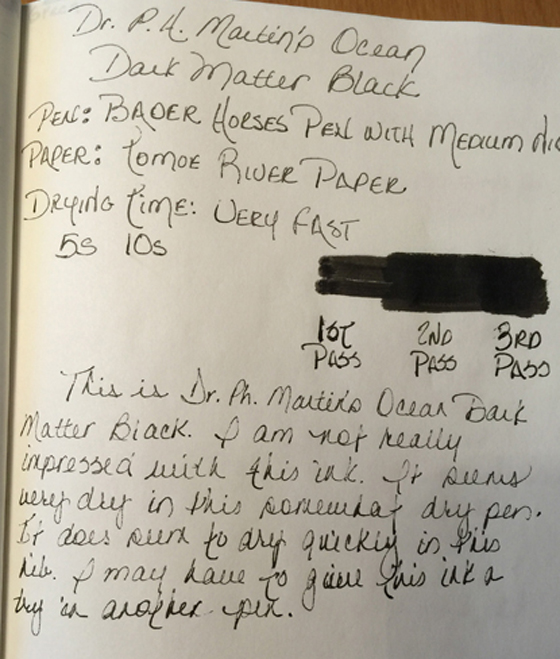 Dr. P.H. Martin's Ocean
Dark Matter Black
PEN: BADER HORSES PEN WITH MEDIUM
PAPER: TOMOE RIVER PAPER
DRYING TIME: VERY FAST
5s 10s
1ST 2ND 3RD
PASS PASS PASS
This is Dr. Ph. Martin's Ocean Dark
Matter Black. I am not really
impressed with this ink. It seems
very dry in this somewhat dry pen.
It does seem to dry quickly in this
nib. I may have to give this ink a
try in another pen.